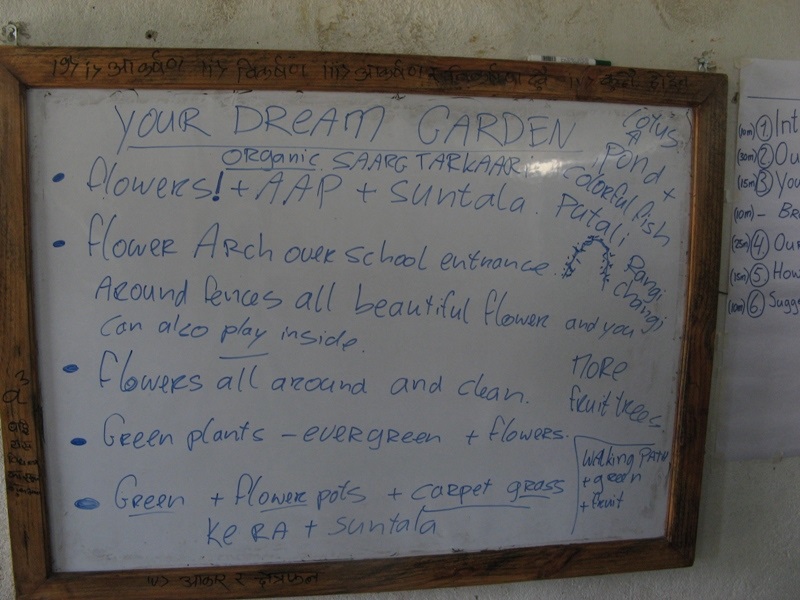 YOUR DREAM GARDEN
Organic SAARG TARKAARI
• flowers! + AAP + suntala.
• flower Arch over school entrance.
Around fences all beautiful flower and you
can also play inside.
• flowers all around and clean.
• Green plants - evergreen + flowers.
• Green + flower pots + carpet grass
KERA + suntala
Lotus
Pond +
colorful fish
Putali
Rangi
changi
more
fruit trees
Walking PATH
+ green
+ fruit
(10m) ① Int
(30m) ② Ou
(15m) ③ You
(10m) - Br
(25m) ④ Our
(15m) ⑤ How
(10m) ⑥ Sugg